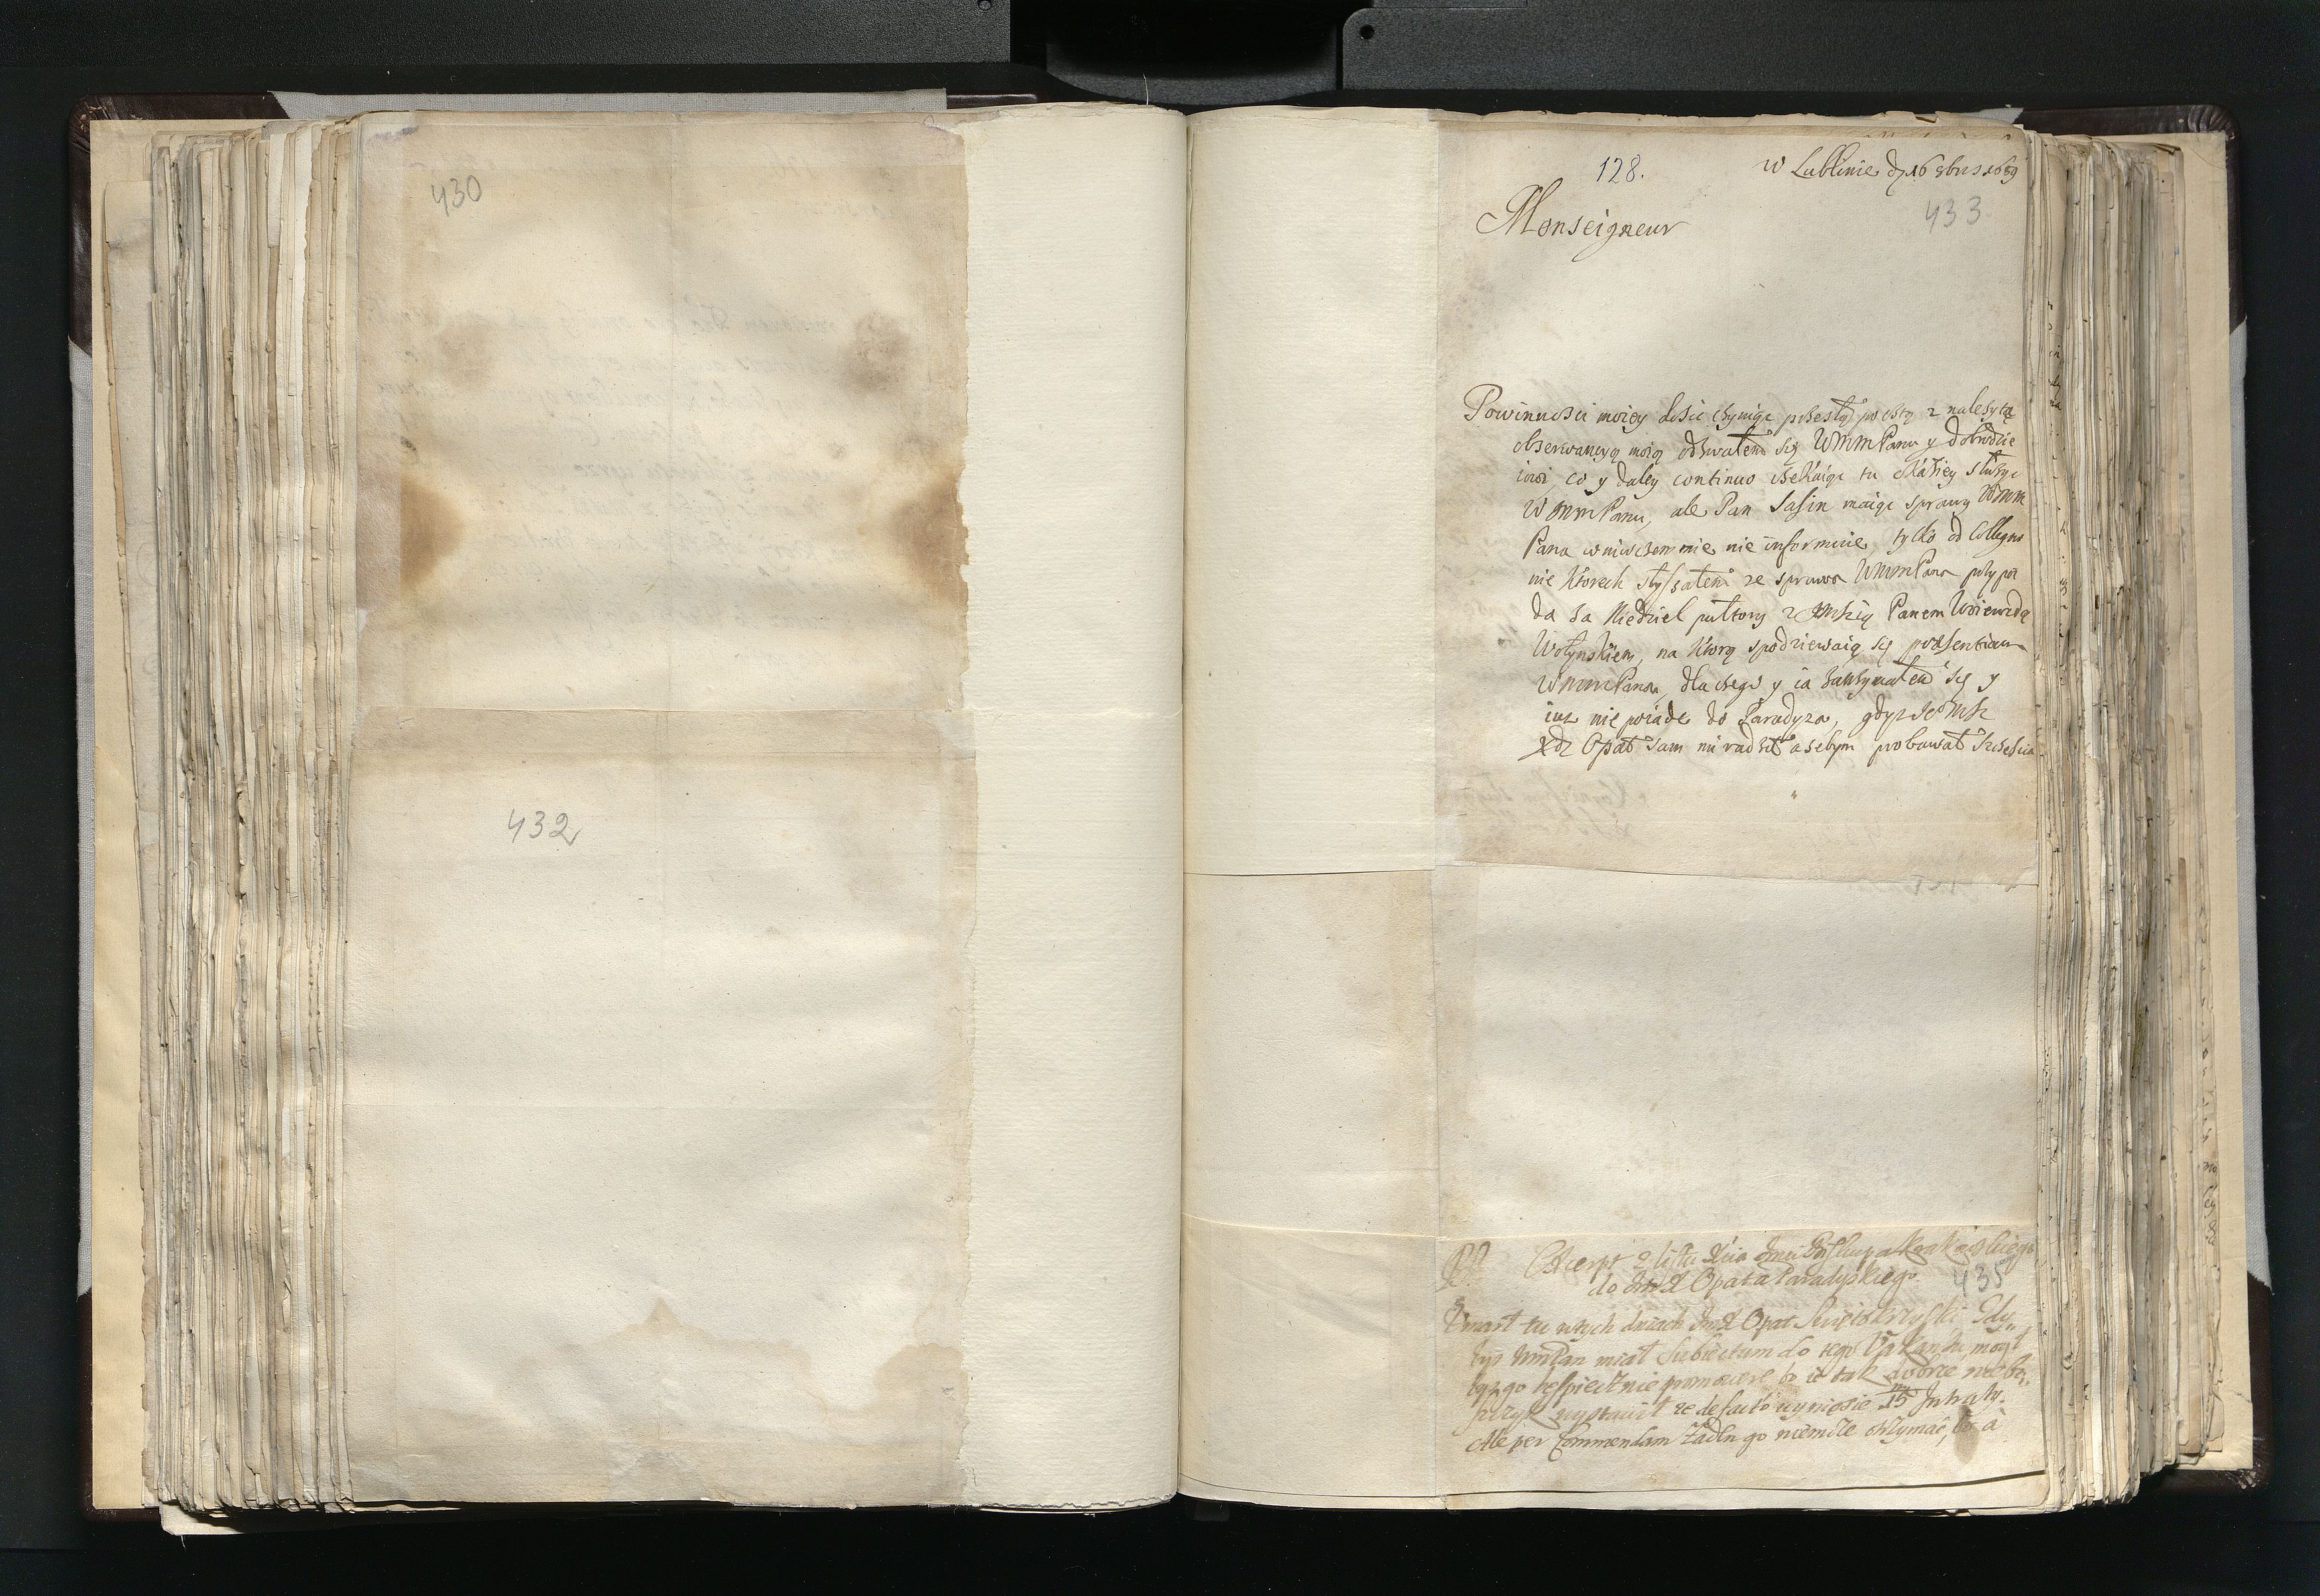 430
432
128.
w Lublinie d 16 8bris 1689
433
Monseigneur
Powinnosci moiey dosic czyniąc przeszłą pocztą z nalezytą
obserwancyą moią odzwałem się WMMPanu y dobrodzie
iowi, co y daley continuo czekaiąc tu okaziey służyc
WMMPanu, ale Pan Sasin maiąc sprawy WMM
Pana w niwczem mie nie informuie, tylko od Collegow
nie ktorech słyszałem ze sprawa WMMPana przypa
da za Niedziel pułtory z JMscią Panem Woiewodą
Wołynskiem, na ktorą spodziewaią się
WMMPana, dla czego y ia zatrzymałem się y
iuz nie poiade do Paradyza, gdyz JeoMsc
Xdz Opat sam mi radził azebym probował szczescia
Excerpt z listu Xcia Jmci Biskupa Krakowskiego
do Jm X Opata Paradyskiego.
435
Vmarł tu w tych dniach Jm X Opat Swiętokrzyski Gdy
byś WmPan miał Subiectum do tego Vakansu, mogł
byś go bespiecznie promovere bo i tak dobrze
ze de facto wyniesie 15 Intraty.
Ale per Commendam żadn go niemoże otrzymać, bo à